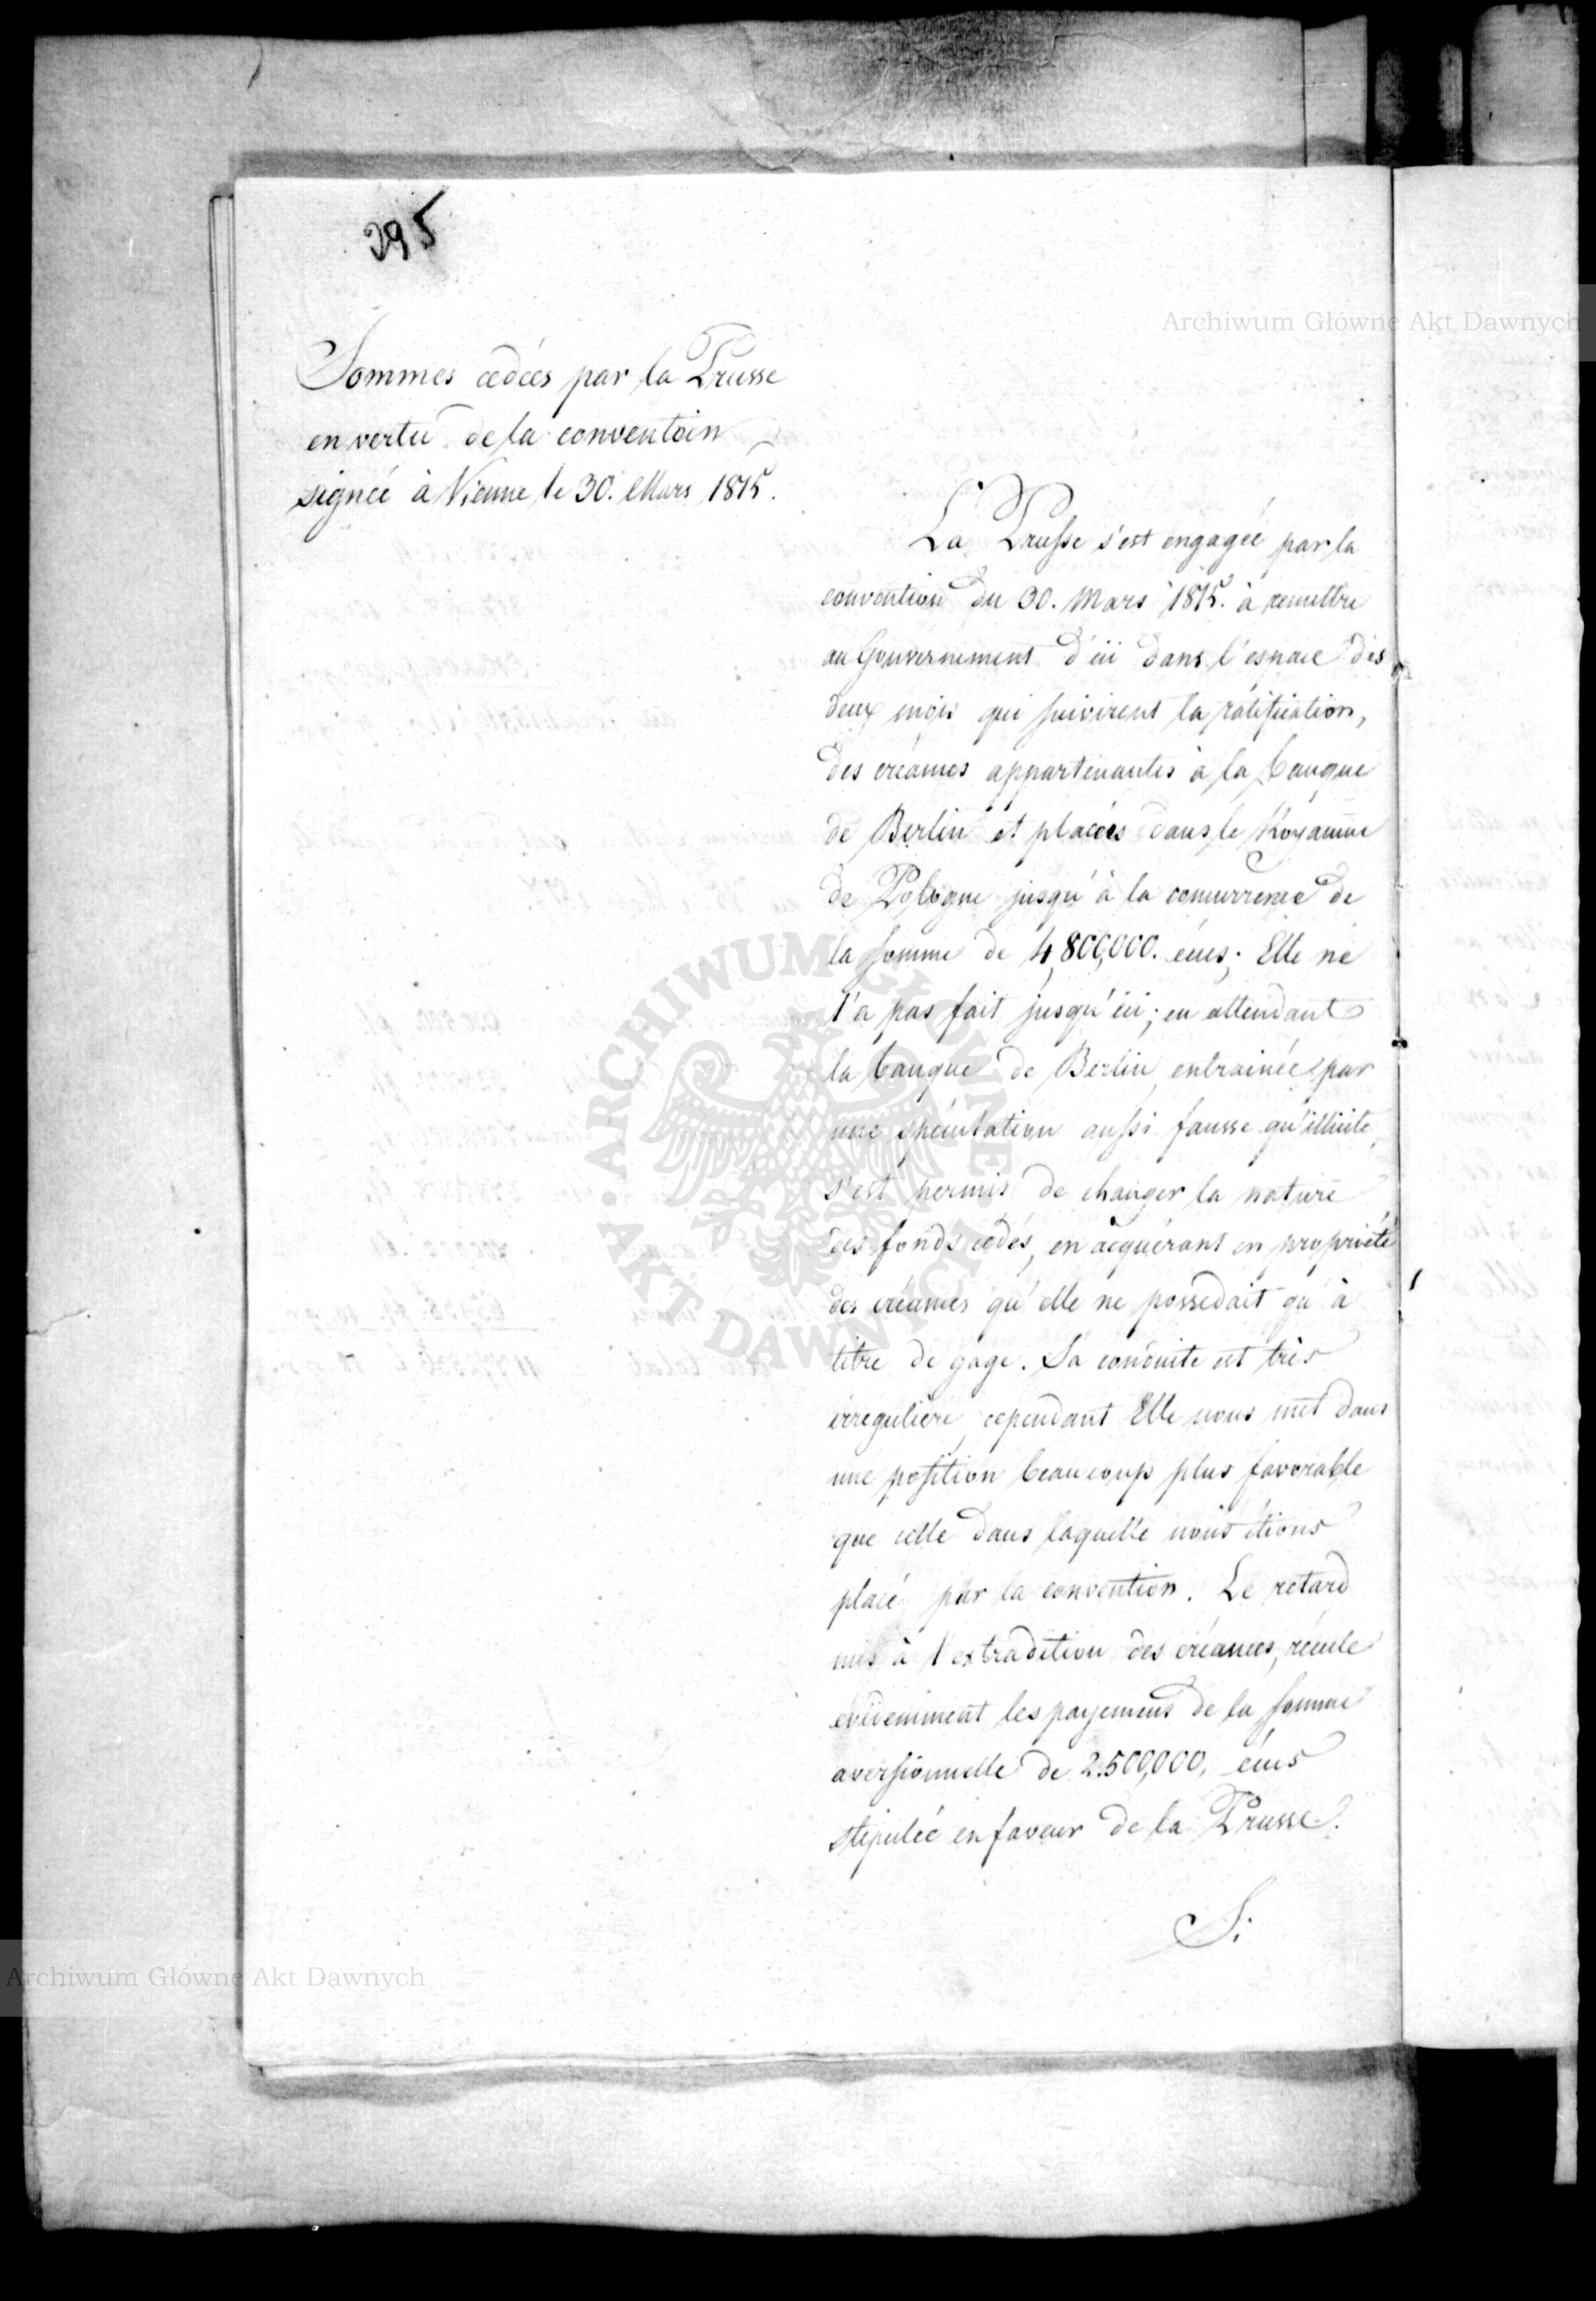 295
Archiwum Główne Akt Dawnych
Sommes cedées par la Prusse
en vertu de la conventoin
signée à Vienne le 30. Mars 1815.
La Prusse s'est engagée par la
convention du 30. Mars 1815. à remettre
au Gouvernement d'ici dans l'espace des
deux mois qui suivirent la ratification,
des créances appartenantes à la banque
de Berlin et placées dans le Royaume
de Pologne jusqu'à la concurrence de
la somme de 4,800,000. écus; Elle ne
l'a pas fait jusqu'ici; en attendant
la banque de Berlin, entrainée par
une spéculation aussi fausse qu'illicite,
s'est permis de changer la nature
des fonds cédés, en acquérant en propriété
des créances qu'elle ne possedait qu'à
titre de gage. Sa conduite est très
irreguliere, cependant Elle nous met dans
une position beaucoup plus favorable
que celle dans laquelle nous étions
placé par la convention. Le retard
mis à l'extradition des créances, récule
evidemment les payemens de la somme
aversionnelle de 2.500,000, écus
stipulée en faveur de la Prusse.
S:
ARCHIWUM GŁÓWNE AKT DAWNYCH
Archiwum Główne Akt Dawnych